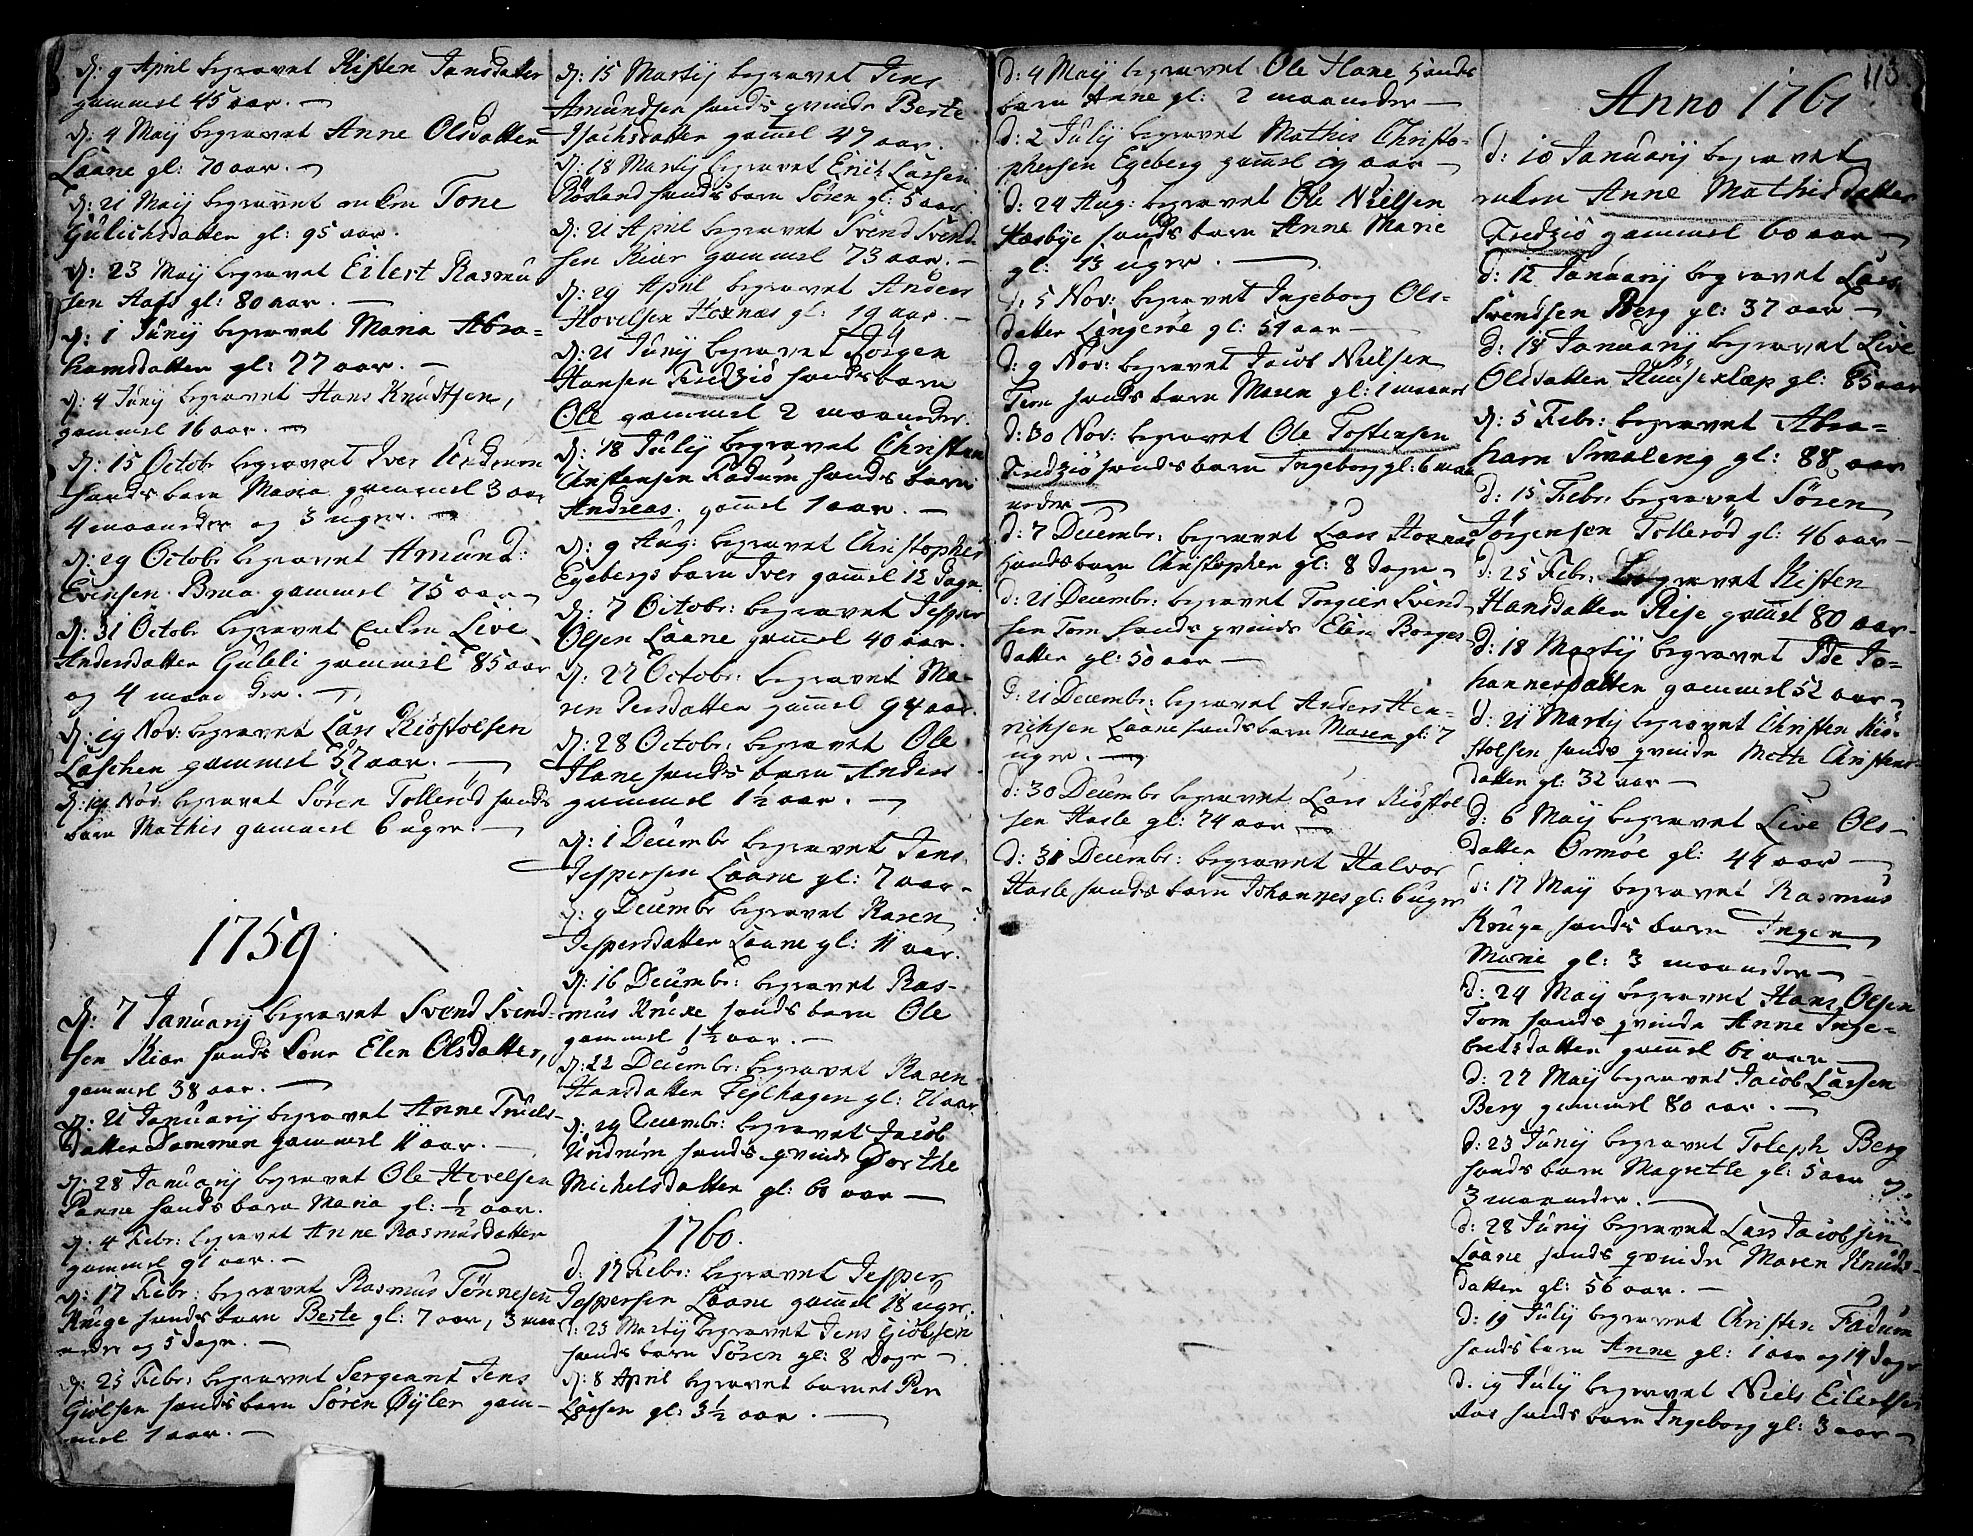 d: 9 April begravet Kisten Jansdatter
gammel 45 aar.
d: 4 Maij begravet Anne Olsdatter
Laane gl: 70 aar.
d: 21 Maij begravet enken Tone
Gulichsdatter gl: 95 aar.
d: 23 Maij begravet Eilert Rasmu
sen Aas gl: 80 aar.
d: 1 Junij begravet Maria Abra-
hamsdatter gl: 77 aar.
d: 4 Junij begravet Hans Knudtsen,
gammel 16 aar.
d: 15 Octobr begravet Iver Undrum
hands barn Maria gammel 3 aar
4 maaneder og 3 uger.
d: 29 Octobr begravet Amund
Evensen Brua gammel 75 aar
d: 31 Octobr begravet Enken Live
Andersdatter Guleli gammel 85 aar
og 4 maaneder.
d: 19 Nov: begravet Lars Kiöstolsen
Laschen gammel 37 aar.
d: 19 Nov: begravet Sören Tolleröd hands
barn Mathis gammel 6 uger.
1759
d: 7 Januarij begravet Svend Svend-
sen Kiær hands Kone Elen Olsdatter,
gammel 38 aar.
d: 21 Januarij begravet Anne Truels-
datter Dammen gammel 11 aar.
d: 28 Januarij begravet Ole Hovelsen
Panne hands barn Maria gl: ½ aar.
d: 4 Febr: begravet Anne Rasmusdatter
gammel 91 aar.
d: 17 Febr: begravet Rasmus Tönnesen
Kruge hands barn Berte gl: 7 aar, 3 maa
neder og 5 dage.
d: 25 Febr: begravet Sergeant Jens
Giölsen hands barn Sören Öyler gam-
mel 1 aar.
d: 15 Martij begravet Jens
Amundsen hands qvinde Berte
Isachsdatter gammel 47 aar.
d: 18 Martij begravet Erich Larsen
Röeland hands barn Sören gl: 5 aar
d: 21 April begravet Svend Svend
sen Kiær gammel 73 aar.
d: 29 April begravet Anders
Hovelsen Hoxnæs gl: 19 aar.
d: 21 Junij begravet Jörgen
Hansen Fredziö hands barn
Ole gammel 2 maaneder.
d: 18 Julij begravet Christen
Christensen Fadum hands barn
Andreas. gammel 1 aar.
d: 9 Aug: begravet Christopher
Egebergs barn Iver gammel 12 dage
d: 7 Octobr: begravet Jesper
Olsen Laane gammel 40 aar.
d: 22 Octobr: begravet Ma-
ren Persdatter gammel 94 aar.
d: 28 Octobr: begravet Ole
Hane hands barn Anders
gammel 1½ aar.
d: 1 Decembr begravet Jens
Jespersen Laane gl: 7 aar
d: 9 Decembr begravet Karen
Jespersdatter Laane gl: 11 aar.
d: 16 Decembr: begravet Ras-
mus Kruke hands barn Ole
gammel 1½ aar.
d: 22 Decembr: begravet Karen
Hansdatter Tejlhagen gl: 71 aar
d: 29 Decembr: begravet Jacob
Undrum hands qvinde Dorthe
Michelsdatter gl: 60 aar
1760.
d: 17 Febr: begravet Jesper
Jespersen Laane gammel 18 uger.
d: 25 Martij begravet Jens Giölsen
hands barn Sören gl: 8 Dage
d: 8 April begravet barnet Per
Larsen gl: 3½ aar.
d: 4 Maij begravet Ole Hane hands
barn Anne gl: 2 maaneder
d: 2 Julij begravet Mathis Christo-
phersen Egeberg gammel 19 aar
d: 24 Aug: begravet Ole Nielsen
Hæsbye hands barn Anne Marie
gl: 13 uger.
d: 5 Nov: begravet Ingeborg Ols-
datter Lingeröe gl: 59 aar
d: 9 Nov: begravet Jacob Nielsen
Tem hands barn Maren gl: 1 maaned
d: 30 Nov: begravet Ole Tostensen
Fredziö hands barn Ingeborg gl: 6 maa
neder
d: 7 Decembr: begravet Lars Hoxnæs
hands barn Christopher gl: 8 dage
d: 21 Decembr: begravet Torgier Svend
sen Tom hands qvinde Elen Borges
datter gl: 50 aar
d: 21 Decembr: begravet Anders Hen-
richsen Laane hands barn Maren gl: 7
uger.
d: 30 Decembr begravet Lars Kiöstol
sen Hasle gl: 74 aar
d: 31 Decembr: begravet Halvor
Hasle hands barn Johannes gl: 6 uger
113
Anno 1761
d: 10 Januarij begravet
enken Anne Mathisdatter
Fredziö gammel 60 aar
d: 12 Januarij begravet Lars
Svendsen Berg gl: 37 aar
d: 18 Januarij begravet Live
Olsdatter Huuseklep gl: 85 aar
d: 5 Febr: begravet Abra-
ham Smaleng gl: 88 aar
d: 15 Febr: begravet Sören
Jörgensen Tolleröd gl: 46 aar
d: 25 Febr: begravet Kisten
Hansdatter Rise gammel 80 aar
d: 18 Martij begravet Ide Jo-
hannesdatter gammel 52 aar
d: 21 Martij begravet Christen Kiö-
stolsen hands qvinde Mette Christens
datter gl: 32 aar
d: 6 Maij begravet Live Ols-
datter Ormöe gl: 44 aar
d: 17 Maij begravet Rasmus
Kruge hands barn Ingen
Marie gl: 3 maaneder
d: 24 Maij begravet Hans Olsen
Tom hands qvinde Anne Inge-
bretsdatter gammel 61 aar
d: 27 Maij begravet Jacob Larsen
Berg gammel 80 aar.
d: 23 Junij begravet Joleph Berg
hands barn Magrethe gl: 5 aar og
3 maaneder.
d: 28 Junij begravet Lars Jacobsen
Laane hands qvinde Maren Knuds-
datter gl: 56 aar.
d: 19 Julij begravet Christen Fadum
hands barn Anne gl: 1 aar og 14 dage
d: 19 Julij begravet Niels Eilertsen
Aas hands barn Ingeborg gl: 3 aar